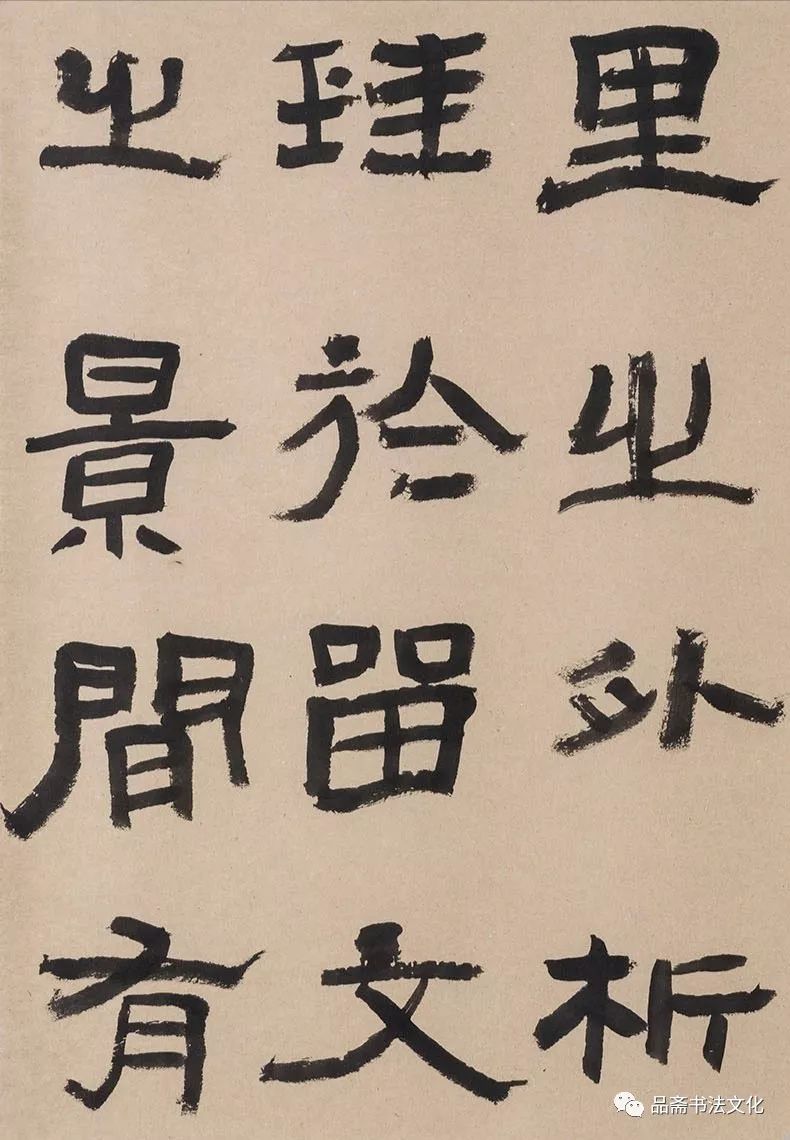 里之外析
珪於留文
之景間有
品斋书法文化